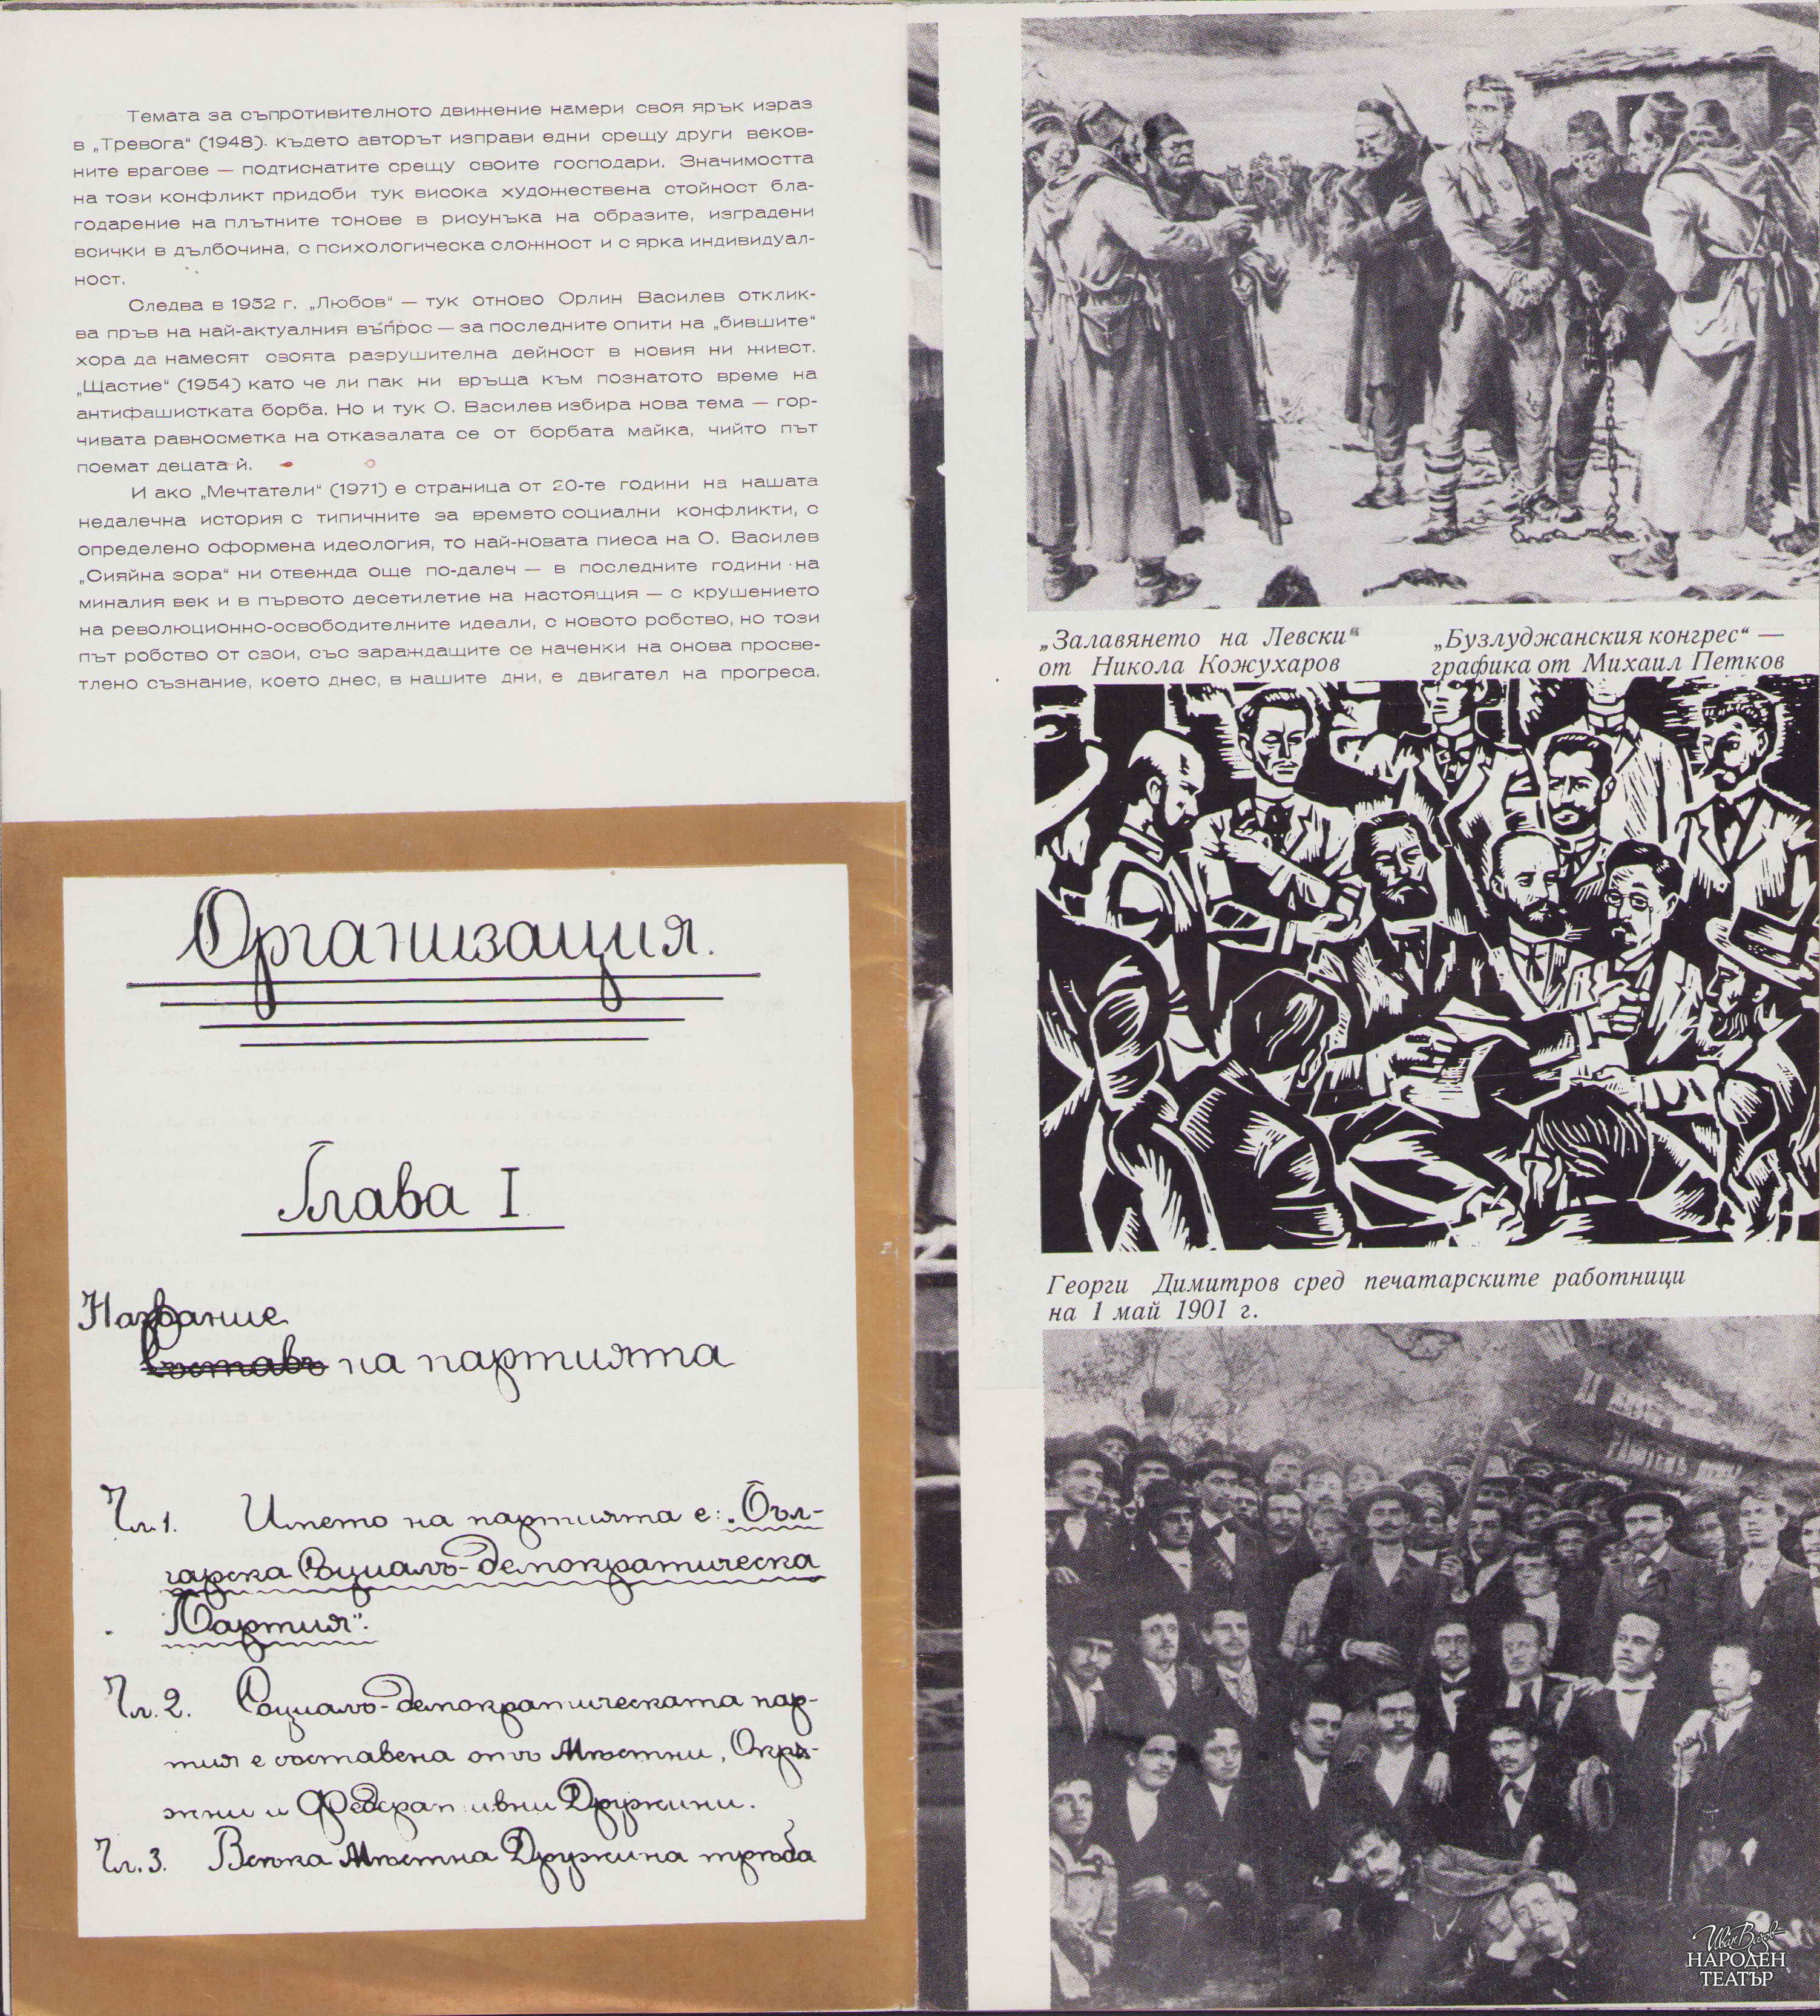 Темата за съпротивителното движение намери своя ярък израз
в „Тревога“ (1948). където авторът изправи едни срещу други веков-
ните врагове — подтиснатите срещу своите господари. Значимостта
на този конфликт придоби тук висока художествена стойност бла-
годарение на плътните тонове в рисунъка на образите, изградени
всички в дълбочина, с психологическа сложност и с ярка индивидуал-
ност.
Следва в 1952 г. „Любов“ — тук отново Орлин Василев отклик-
ва пръв на най-актуалния въпрос — за последните опити на „бившите“
хора да намесят своята разрушителна дейност в новия ни живст.
„Щастие“ (1954) като че ли пак ни връща към познатото време на
антифашистката борба. Но и тук О. Василев избира нова тема — гор-
чивата равносметка на отказалата се от борбата майка, чийто път
поемат децата ѝ.
И ако „Мечтатели“ (1971) е страница от 20-те години на нашата
недалечна история с типичните за времето социални конфликти, с
определено оформена идеология, то най-новата пиеса на О. Василев
„Сияйна зора“ ни отвежда още по-далеч — в последните години на
миналия век и в първото десетилетие на настоящия — с крушението
на революционно-освободителните идеали, с новото робство, но този
път робство от свои, със зараждащите се наченки на онова просве-
тлено съзнание, което днес, в нашите дни, е двигател на прогреса.
Организация.
Глава I
Название
Съставъ на партията
Чл. 1. Името на партията е: „Бъл-
гарска Социалъ-демократическа
Партия“.
Чл. 2. Социалъ-демократическата пар-
тия е съставена отъ Мѣстни, Окрѫ-
жни и Федеративни Дружини.
Чл. 3. Всѣка Мѣстна Дружина трѣба
„Залавянето на Левски“
от Никола Кожухаров
„Бузлуджанския конгрес“ —
графика от Михаил Петков
Георги Димитров сред печатарските работници
на 1 май 1901 г.
Иван Вазов
НАРОДЕН
ТЕАТЪР